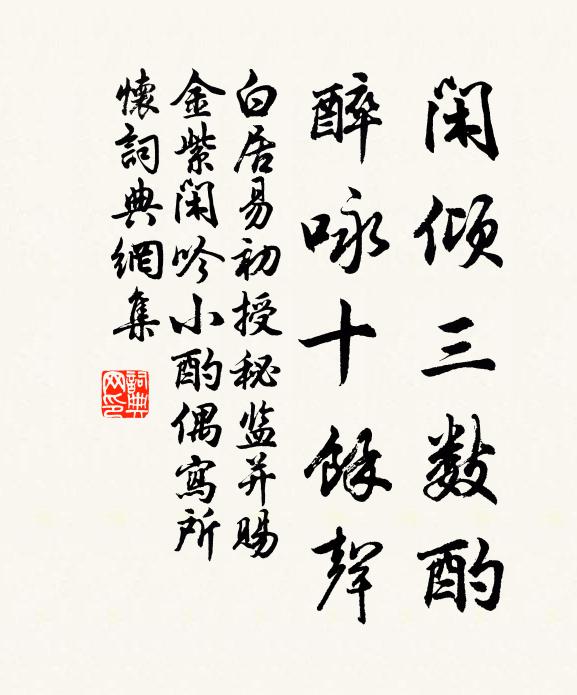 闲倾三数酌
醉咏十餘聲
白居易初授秘监并賜
金紫闲吟小酌偶寫所
懷詞典網集
詞典
网印